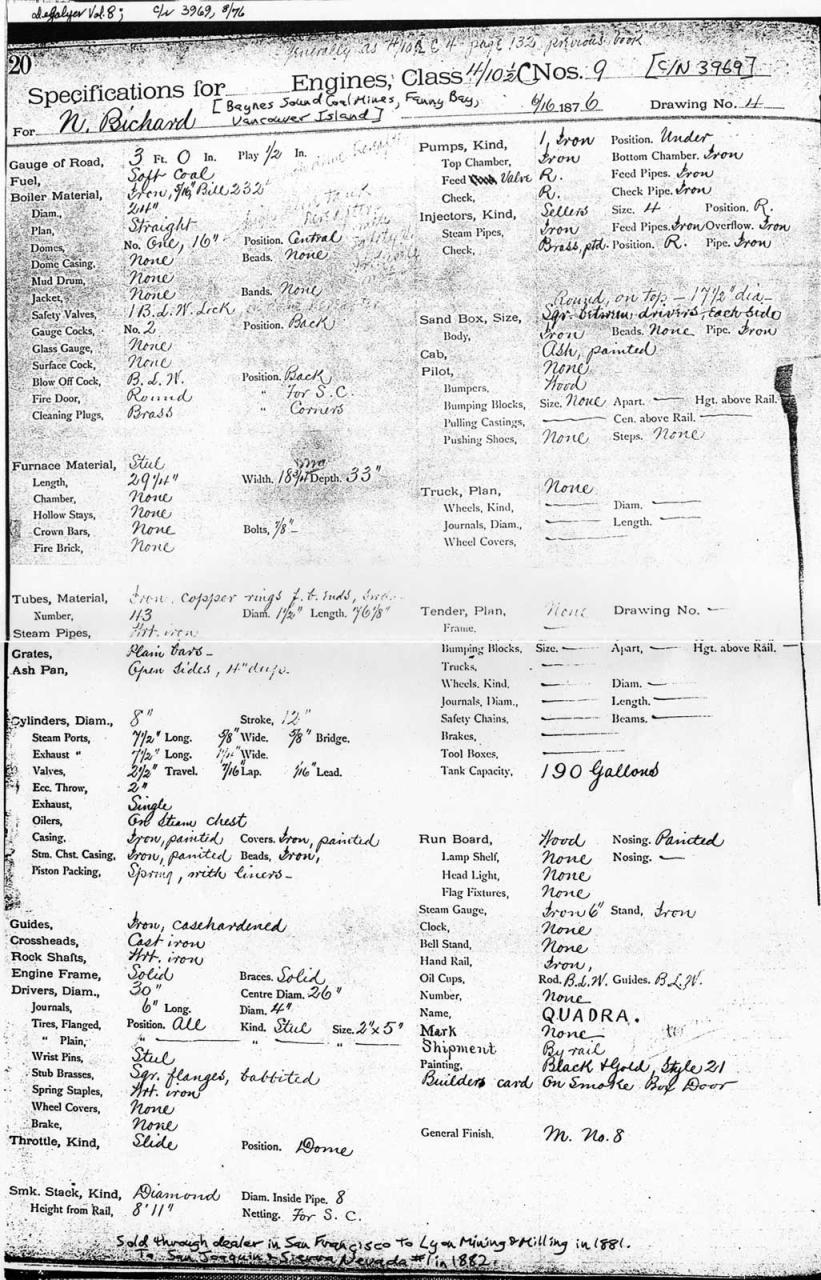 deGolyer Vol. 8; c/n 3969, 8/76
Generally as 4/10½ C 4 page 132, previous book
20
Specifications for Engines, Class 4/10½ C Nos. 9 [C/N 3969]
For N. Bichard [Baynes Sound Coal Mines, Fanny Bay, Vancouver Island] 6/16 1876 Drawing No. 4
Gauge of Road, 3 Ft. 0 In. Play ½ In.
Fuel, Soft Coal
Boiler Material, Iron, 5/16" Bill 232
Diam., 24"
Plan, Straight
Domes, No. One, 16" Position. Central
Dome Casing, None Beads. None
Mud Drum, None
Jacket, None Bands. None
Safety Valves, 1 B.L.W. Lock
Gauge Cocks, No. 2 Position. Back
Glass Gauge, None
Surface Cock, None
Blow Off Cock, B.L.W. Position. Back
Fire Door, Round " For S.C.
Cleaning Plugs, Brass " Corners
Furnace Material, Steel
Length, 29¼" Width. 18¾" Depth. 33"
Chamber, None
Hollow Stays, None
Crown Bars, None Bolts, 7/8"
Fire Brick, None
Tubes, Material, Iron, copper rings f.b. ends,
Number, 43 Diam. 1½" Length. 76 1/8"
Steam Pipes, Wrt. iron
Grates, Plain bars
Ash Pan, Open sides, 4" deep.
Cylinders, Diam., 8" Stroke, 12"
Steam Ports, 7½" Long. 5/8" Wide. 5/8" Bridge.
Exhaust " 7½" Long. 1¼" Wide.
Valves, 2½" Travel. 7/16" Lap. 1/16" Lead.
Ecc. Throw, 2"
Exhaust, Single
Oilers, On Steam chest
Casing, Iron, painted Covers. Iron, painted
Stm. Chst. Casing, Iron, painted Beads, Iron,
Piston Packing, Spring, with liners
Guides, Iron, casehardened
Crossheads, Cast iron
Rock Shafts, Wrt. iron
Engine Frame, Solid Braces. Solid
Drivers, Diam., 30" Centre Diam. 26"
Journals, 6" Long. Diam. 4"
Tires, Flanged, Position. All Kind. Steel Size. 2" x 5"
" Plain, " " "
Wrist Pins, Steel
Stub Brasses, Sqr. flanges, babbited
Spring Staples, Wrt. iron
Wheel Covers, None
Brake, None
Throttle, Kind, Slide Position. Dome
Smk. Stack, Kind, Diamond Diam. Inside Pipe. 8
Height from Rail, 8'11" Netting. For S.C.
Pumps, Kind, 1, Iron Position. Under
Top Chamber, Iron Bottom Chamber. Iron
Feed Valve R. Feed Pipes. Iron
Check, R. Check Pipe. Iron
Injectors, Kind, Sellers Size. 4 Position. R.
Steam Pipes, Iron Feed Pipes. Iron Overflow. Iron
Check, Brass, ptd. Position. R. Pipe. Iron
Round, on top – 17½" dia
Sand Box, Size, Sqr. between drivers, each side
Body, Iron Beads. None Pipe. Iron
Cab, Ash, painted
Pilot, None
Bumpers, Wood
Bumping Blocks, Size. None Apart. — Hgt. above Rail. —
Pulling Castings, — Cen. above Rail. —
Pushing Shoes, None Steps. None
Truck, Plan, None
Wheels, Kind, — Diam. —
Journals, Diam., — Length. —
Wheel Covers, —
Tender, Plan, None Drawing No. —
Frame. —
Bumping Blocks, Size. — Apart, — Hgt. above Rail. —
Trucks, —
Wheels, Kind, — Diam. —
Journals, Diam., — Length. —
Safety Chains, — Beams. —
Brakes, —
Tool Boxes, —
Tank Capacity, 190 Gallons
Run Board, Wood Nosing. Painted
Lamp Shelf, None Nosing. —
Head Light, None
Flag Fixtures, None
Steam Gauge, Iron 6" Stand, Iron
Clock, None
Bell Stand, None
Hand Rail, Iron,
Oil Cups, Rod. B.L.W. Guides. B.L.W.
Number, None
Name, QUADRA.
Mark None
Shipment By rail
Painting, Black & Gold, Style 21
Builders card On Smoke Box Door
General Finish, M. No. 8
Sold through dealer in San Francisco to Lyon Mining & Milling in 1881.
To San Joaquin & Sierra Nevada #1 in 1882.